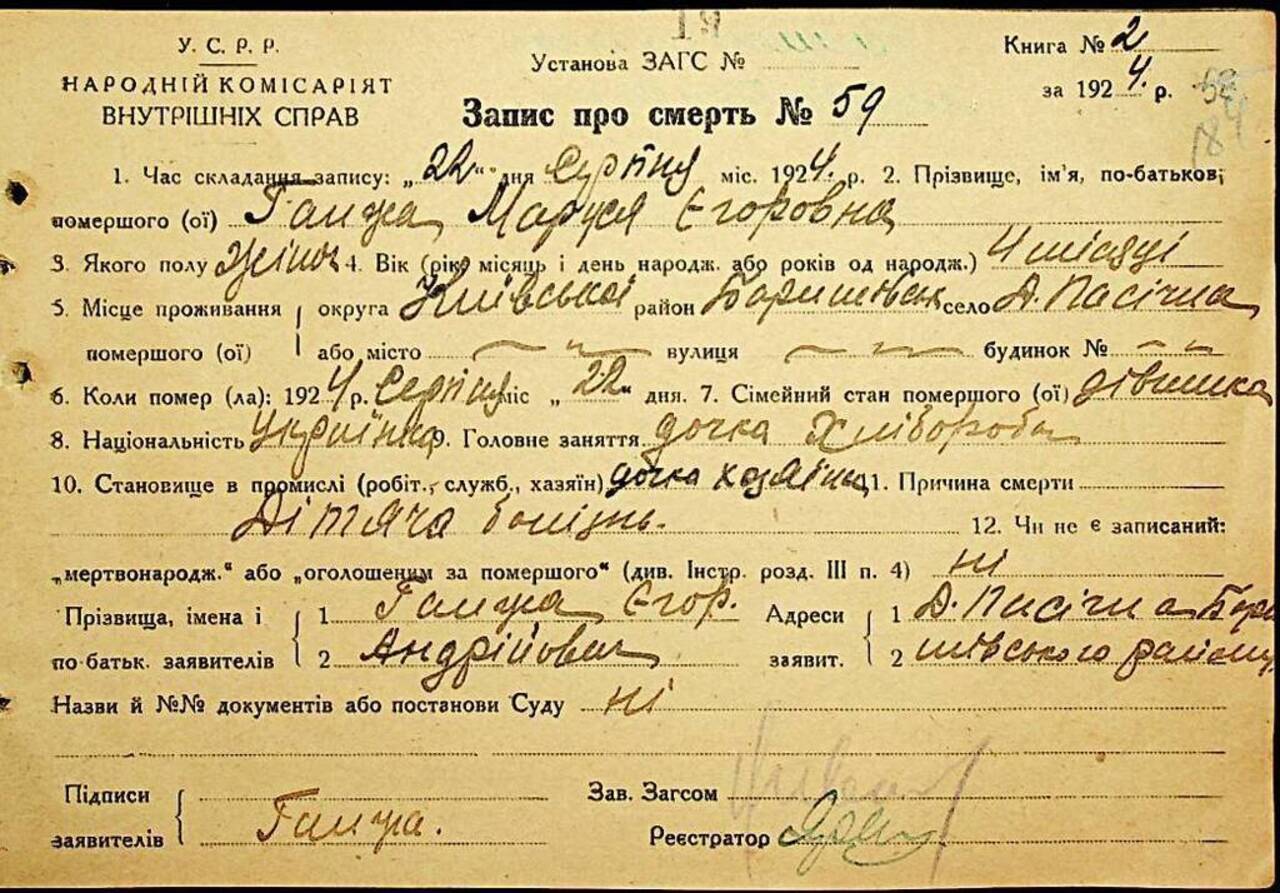 У. С. Р. Р.
НАРОДНІЙ КОМІСАРІЯТ
ВНУТРІШНІХ СПРАВ
Установа ЗАГС №
Книга № 2
за 1924. р.
Запис про смерть № 59
1. Час складання запису: „22“ дня Серпня міс. 1924. р. 2. Прізвище, ім'я, по-батькові,
помершого (ої) Ганжа Маруся Єгоровна
3. Якого полу жіноч 4. Вік (рік, місяць і день народж. або років од народж.) 4 місяці
5. Місце проживання округа Київської район Баришівськ село Д. Пасічна
помершого (ої) або місто — „ — вулиця — „ — будинок № — „ —
6. Коли помер (ла): 1924 р. Серпня міс „22“ дня. 7. Сімейний стан помершого (ої) дівчинка
8. Національність Українка 9. Головне заняття дочка Хлібороба
10. Становище в промислі (робіт., служб., хазяїн) дочка хазяїна 11. Причина смерти
Дітяча болізнь. 12. Чи не є записаний:
„мертвонародж.“ або „оголошеним за помершого“ (див. Інстр. розд. III п. 4) ні
Прізвища, імена і 1 Ганжа Єгор. Адреси 1 Д. Пасічна Бари
по батьк. заявителів 2 Андрійович заявит. 2 шівського району
Назви й №№ документів або постанови Суду ні
Підписи
заявителів Ганжа.
Зав. Загсом
Реєстратор